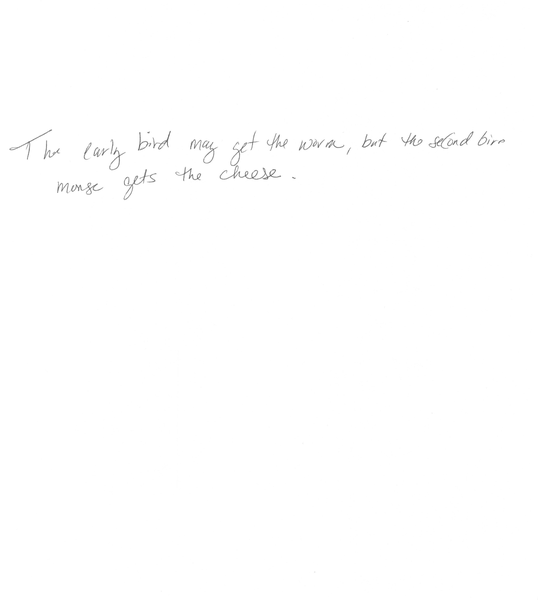 The early bird may get the worm, but the second birn
mouse gets the cheese.